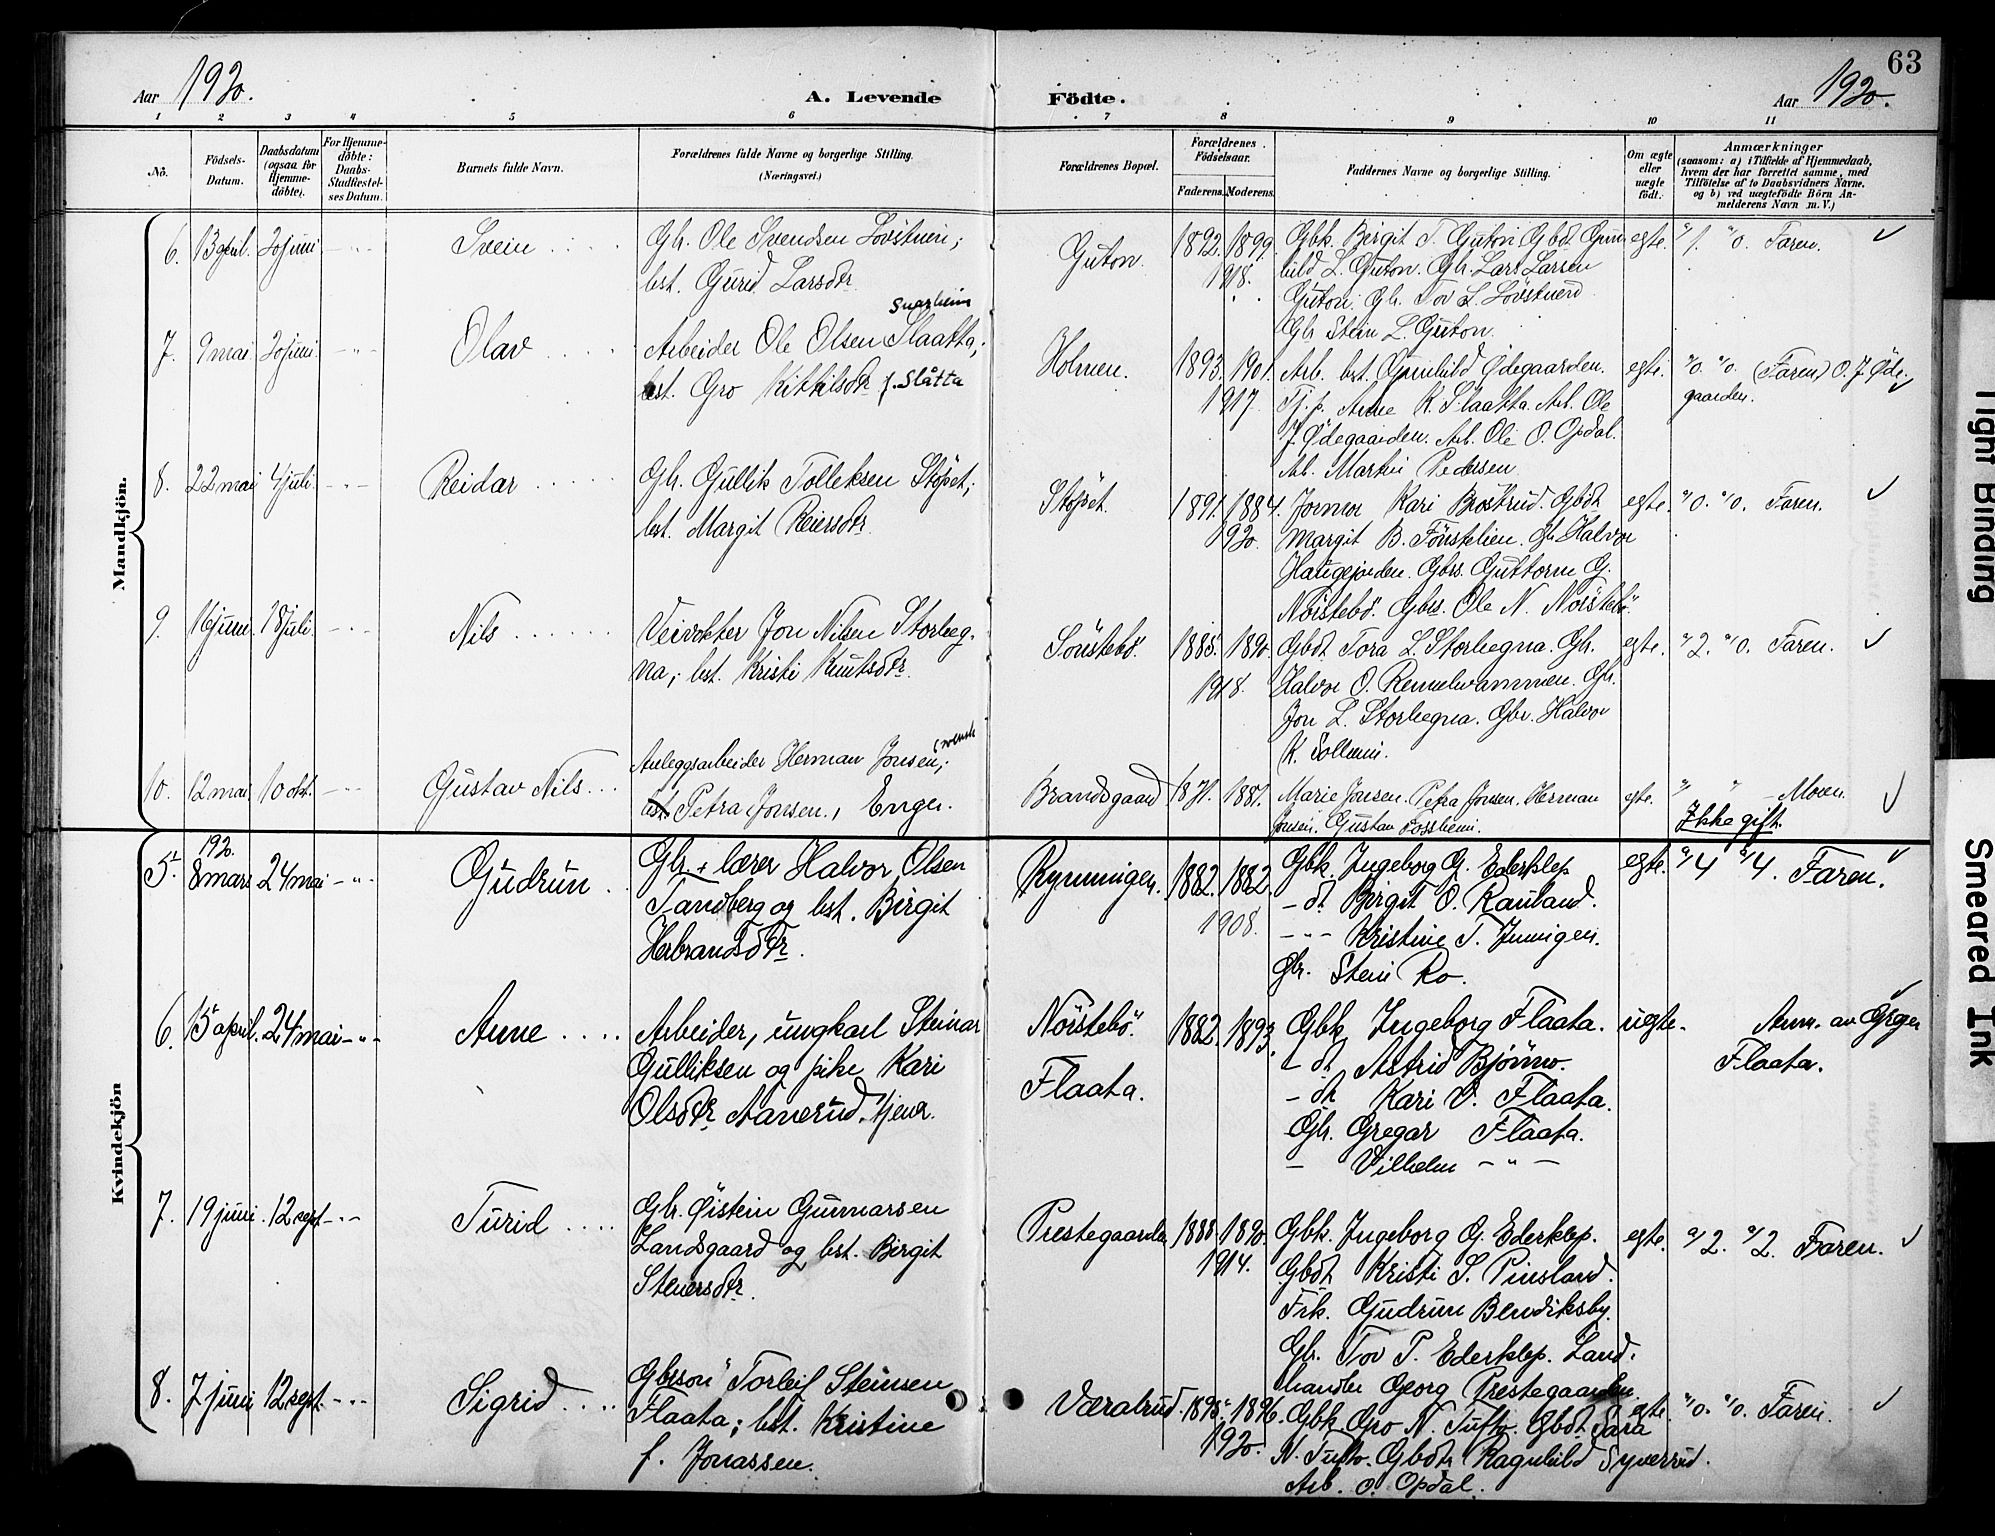 63
Aar 1920. A. Levende Födte. Aar 1920.
1 2 3 4 5 6 7 8 9 10 11
No.
Födsels-
Datum.
Daabsdatum
(ogsaa for
Hjemme-
döbte).
For Hjemme-
döbte:
Daabs-
Stadfæstel-
ses Datum.
Barnets fulde Navn.
Forældrenes fulde Navne og borgerlige Stilling.
(Næringsvei.)
Forældrenes Bopæl.
Forældrenes
Födselsaar.
Faderens. Moderens.
Faddernes Navne og borgerlige Stilling.
Om ægte
eller
uægte
födt.
Anmærkninger
(saasom: a) i Tilfælde af Hjemmedaab,
hvem der har forrettet samme, med
Tilföielse af to Daabsvidners Navne,
og b) ved uægtefödte Börn An-
melderens Navn m. V.)
Mandkjön.
6. 13 april. 20 juni - " - Svein
Gbr. Ole Svendsen Lövstuen;
hst. Gurid Larsdtr.
Guton. 1892. 1899.
1918.
Gbk. Birgit T. Guton. Gbdt Gun-
hild L. Guton. Gbr. Lars Larsen
Guton. Gbr. Tov L. Lövstuen
Gbr Stein L. Guton.
egte. a/1. b/0. Faren.
7. 9 mai 20 juni. - " - Olav
Snarheim
Arbeider Ole Olsen Slaatta;
hst. Gro Kittilsdtr f. Slåtta
Holmen. 1893. 1901.
1917.
Arb. hst. Gunhild Ødegaarden.
Tj.p. Anne K. Slaatta. Arb. Ole
J. Ødegaarden. Arb. Ole O. Opdal.
Arb. Martin Pedersen.
egte. a/0. b/0. (Faren) O. J. Øde-
gaarden.
8. 22 mai 4 juli. - " - Reidar
Gbr. Gullik Tolleksen Stöpet;
hst. Margit Reiersdtr.
Stöpet. 1891. 1884.
1920.
Jormor Kari Brostrud. Gbdt
Margit B. Fönstelien. Gbr Halvor
Haugejorden. Gbrs. Guttorm G.
Nörstebö. Gbrs. Ole N. Nörstebö.
egte. a/0. b/0. Faren.
9. 16 juni 18 juli. - " - Nils
Veivokter Jon Nilsen Storheg-
na; hst. Kristi Knutsdtr.
Sönstebö. 1885. 1890.
1918.
Gbdt. Tora L. Storhegna. Gbr.
Halvor O. Remelwammen. Gbr.
Jon L. Storhegna. Gbr. Halvor
K. Solheim.
egte. a/2. b/0. Faren.
10. 12 mai. 10 okt. - " - Gustav Nils
Anleggsarbeider Herman Jonsen, svensk
hst. Petra Jonsen, Enger.
Brandsgaard 1871. 1881.
Marie Jonsen. Petra Jonsen. Herman
Jonsen. Gustav Fossheim.
egte. " " - Moren.
Ikke gift.
Kvindekjön
1920.
5. 8 mars 24 mai - " - Gudrun
Gbr. + lærer Halvor Olsen
Tandberg og hst. Birgit
Herbrandsdtr.
Rymmingen. 1882. 1882.
1908.
Gbk. Ingeborg G. Ederklep
- dt. Birgit O. Rauland.
- " - Kristine T. Juningen.
Gbr. Stein Ro.
egte. a/4 b/4. Faren.
6. 15 april. 24 mai - " - Anne
Arbeider, ungkarl Steinar
Gulliksen og pike Kari
Olsdtr Aanerud, tjener.
Nörstebö.
Flaata.
1882. 1893.
Gbk. Ingeborg Flaata.
- dt Astrid Björnno.
- dt Kari V. Flaata.
Gbr. Gregar Flaata.
- Vilhelm - " -
uegte. Anm. av
Flaata.
7. 19 juni. 12 sept. - " - Turid
Gbr. Øistein Gunnarsen
Landsgaard og hst. Birgit
Steinersdtr.
Prestegaarden 1888. 1890.
1914.
Gbk. Ingeborg G. Ederklep.
Gbdt Kristi S. Pinsland.
Frk. Gudrun Bendiksby.
Gbr. Tov P. Ederklep. Land-
handler Georg Prestegaarden.
egte. a/2. b/2. Faren.
8. 7 juni 12 sept. - " - Sigrid
Gbrsön Torleif Steinsen
Flaata; hst. Kristine
f. Jonassen.
Væralrud. 1898. 1896.
1920.
Gbk. Gro N. Tufto. Gbdt Sara
N. Tufto. Gbdt Ragnhild Syverrud.
Arb. O. Opdal.
egte. a/0. b/0. Faren.
Tight Binding
Smeared Ink